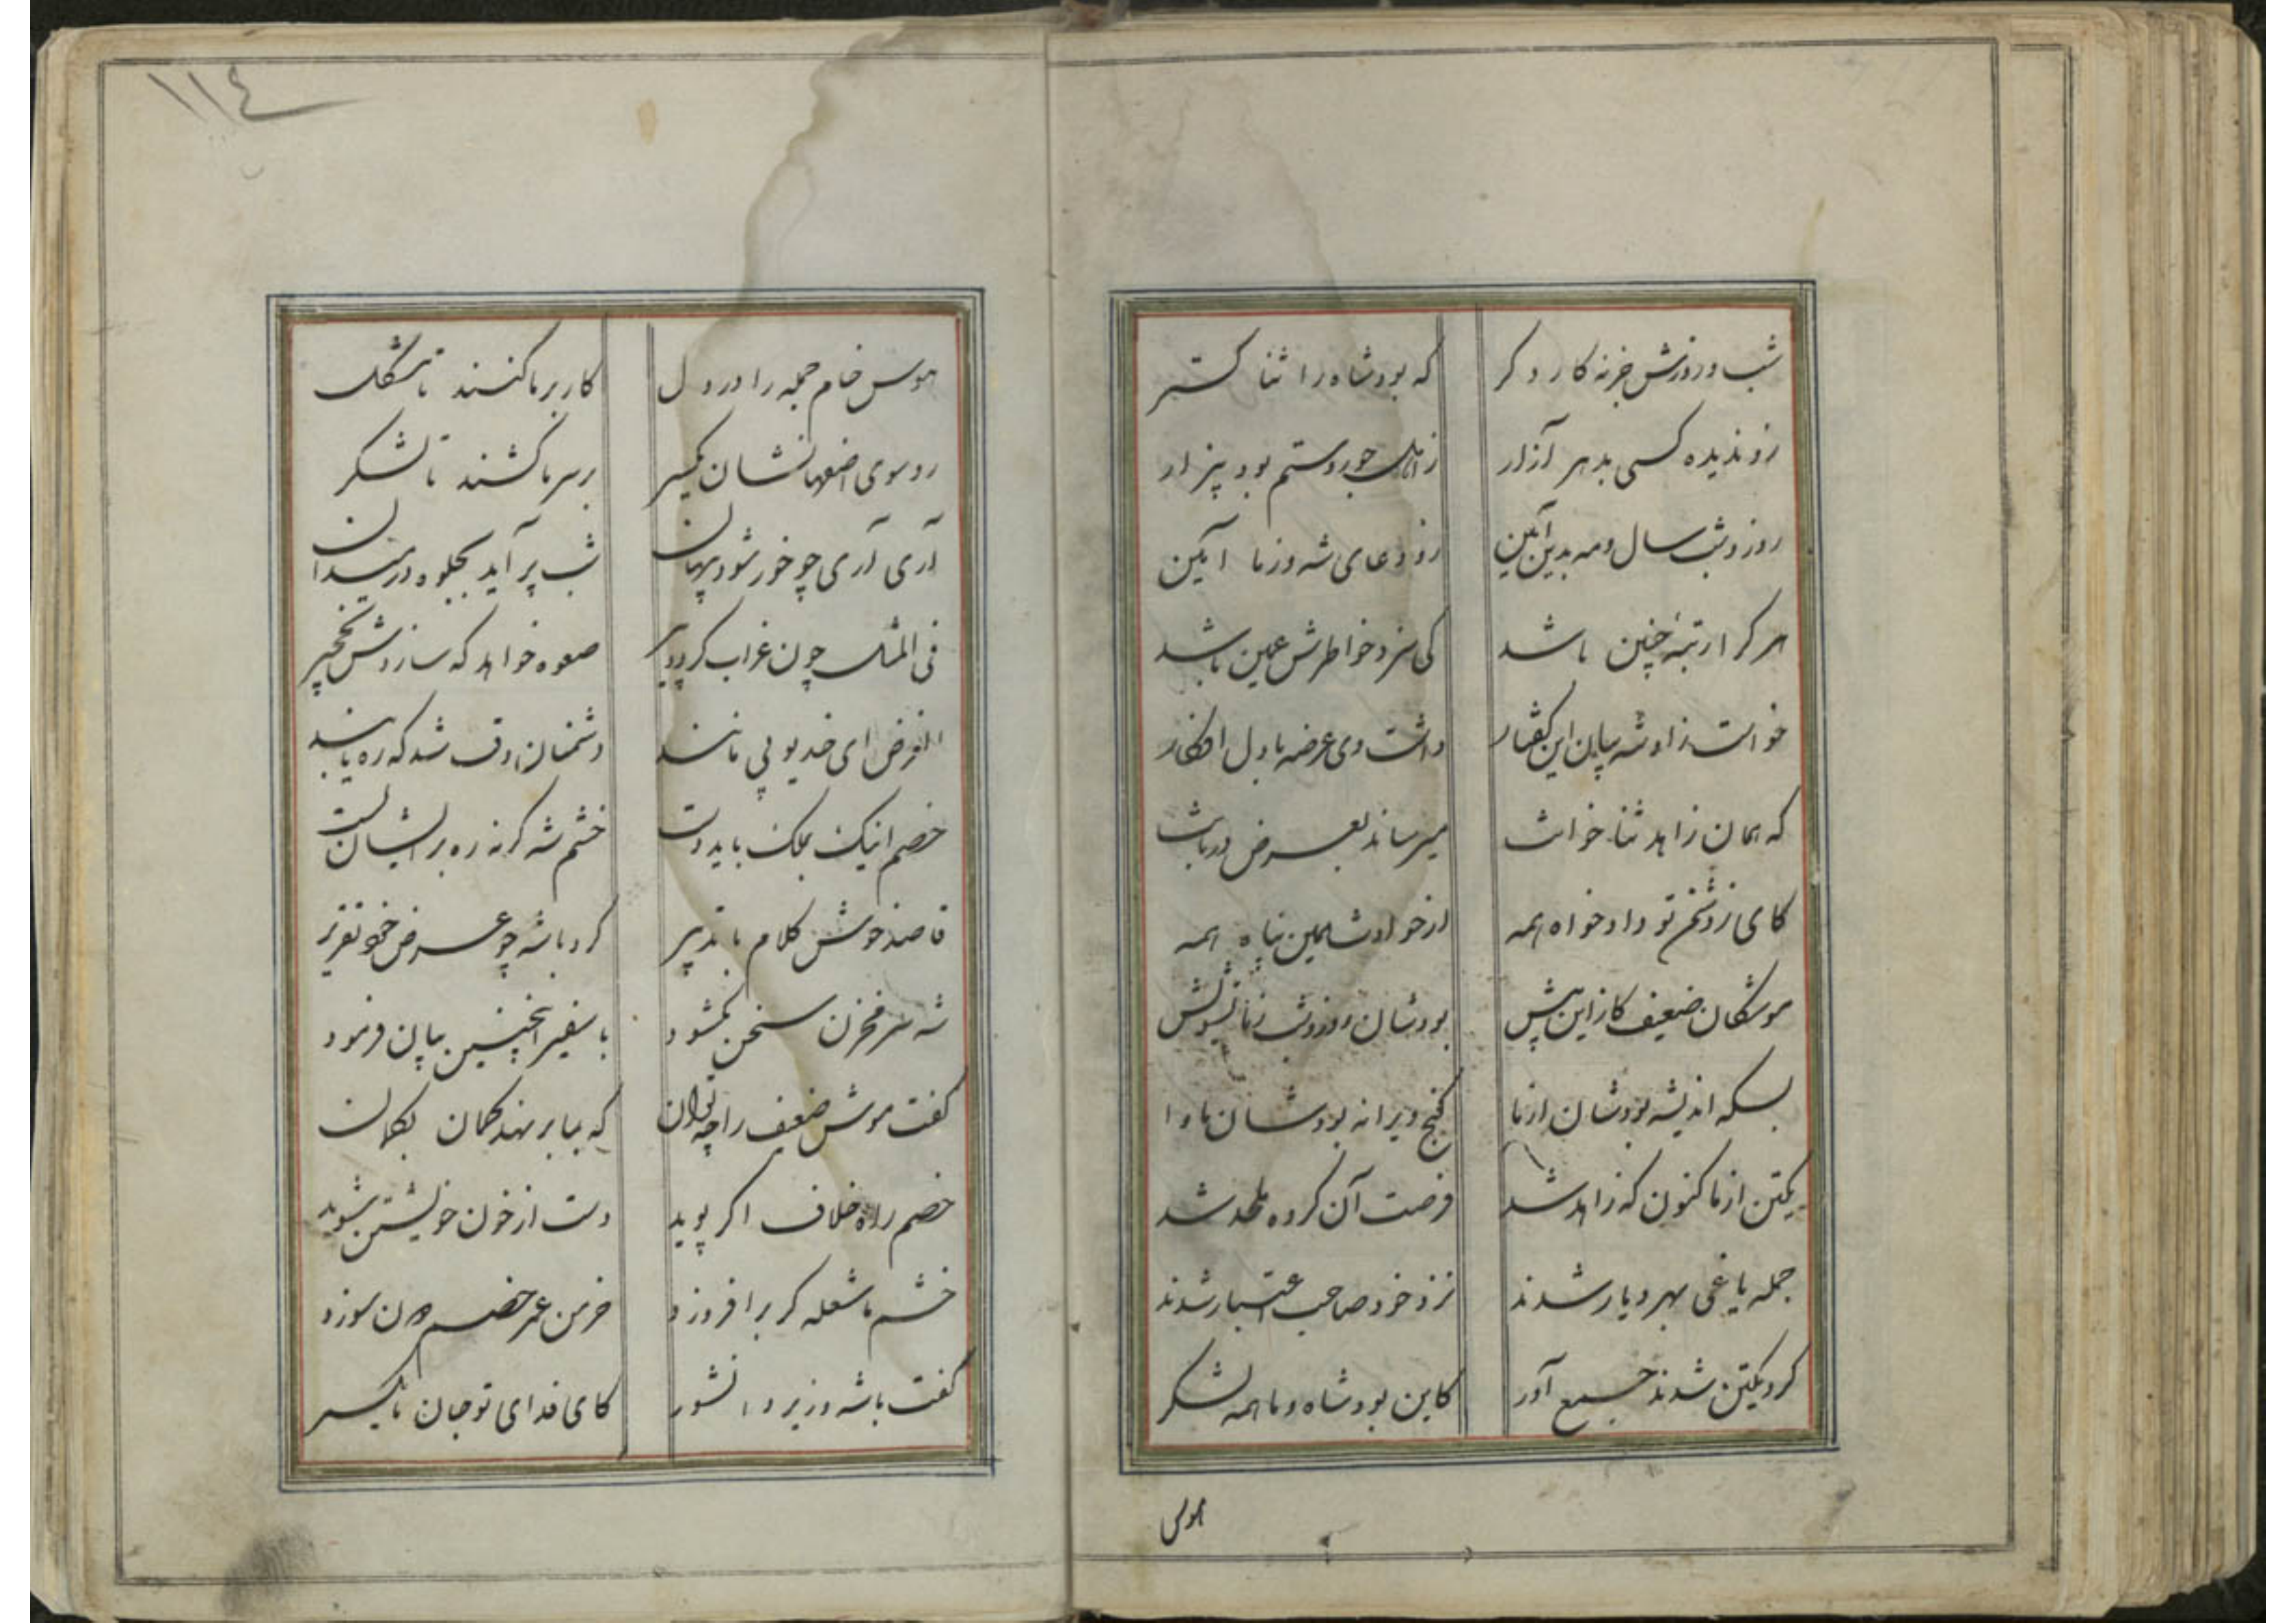 شب و روزش جز نه کار دگر که بود شاه را ثنا گستر
زو ندیده کسی بدهر آزار ز جور و ستم بود بیزار
روز و شب سال و مه بدین آئین زو دعای شه و ز ما آمین
هر کرا رتبهٔ چنین باشد کی سزد خاطرش غمین باشد
خواست زاو شه بیان این گفتار داشت وی عرضه با دل افکار
که همان زاهد ثنا خوانت میرساند بعرض دربانت
کای ز تو دادخواه همه از حوادث همین پناه همه
موشکان ضعیف کاز این پیش بودشان روز و شب ز ما تشویش
بسکه اندیشه بودشان از ما کنج ویرانه بودشان ماوا
یکتن از ما کنون که زاهد شد فرصت آن گروه ملحد شد
جمله یاغی بهر دیار شدند نزد خود صاحب اعتبار شدند
گرد یکتن شدند جمع آور کاین بود شاه و ما همه لشکر
هوس
١١٤
هوس خام جمله را در دل کار بر ما کنند تا مشکل
رو سوی اصفهانشان یکسر بر سر ما کشند تا لشکر
آری آری چو خور شود پنهان شب پر آید بجلوه در میدان
فی المثل چون غراب گردد پیر صعوه خواهد که سازدش نخچیر
الغرض ای خدیو بی مانند دشمنان را وقت شد که ره یابند
خصم اینک بملک باید دست خشم شه گر نه ره بر ایشان بست
قاصد خوش کلام با تدبیر کرد با شه چو عرض خود تقریر
شه سر مخزن سخن بگشود با سفیر اینچنین بیان فرمود
گفت موش ضعیف را چه توان که ببا بر نهند گمان
خصم راه خلاف اگر پوید دست از خون خویشتن شوید
خشم ما شعله گر بر افروزد خرمن عمر خصم دون سوزد
گفت با شه وزیر دانشور کای فدای تو جان ما یکسر